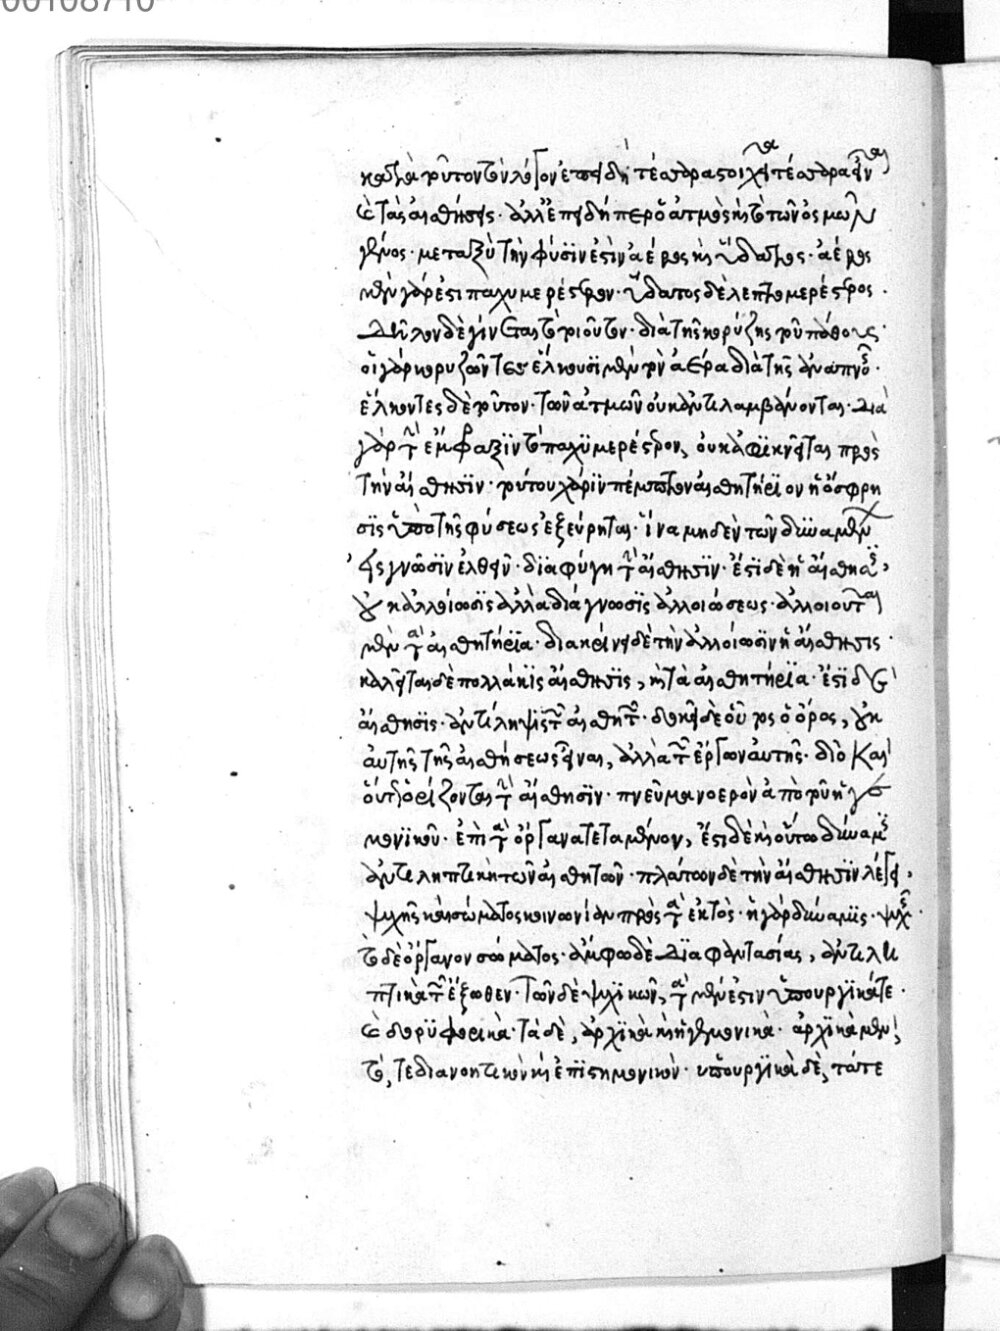 00108710
κατὰ τοῦτον τὸν λόγον ἐπειδὴ τέσσαρα στοιχεῖα τέσσαρας εἶναι
καὶ τὰς αἰσθήσεις· ἀλλ' ἐπειδήπερ ὁ ἀτμὸς καὶ τὸ τῶν ὀσμῶν
γένος· μεταξὺ τὴν φύσιν ἐστὶν ἀέρος καὶ ὕδατος· ἀέρος
μὲν γάρ ἐστι παχυμερέστερον· ὕδατος δὲ λεπτομερέστερος·
δῆλον δὲ γίνεται τὸ τοιοῦτον· διὰ τῆς κορύζης τοῦ πάθους·
οἱ γὰρ κορυζῶντες ἕλκουσι μὲν τὸν ἀέρα διὰ τῆς ἀναπνοῆς·
ἕλκοντες δὲ τοῦτον· τῶν ἀτμῶν οὐκ ἀντιλαμβάνονται· διὰ
γὰρ τὴν ἔμφραξιν τὸ παχυμερέστερον, οὐκ ἀφικνεῖται πρὸς
τὴν αἴσθησιν· τούτου χάριν πέμπτον αἰσθητήριον ἡ ὄσφρη
σις ὑπὸ τῆς φύσεως ἐξεύρηται· ἵνα μηδὲν τῶν δυναμένων
εἰς γνῶσιν ἐλθεῖν· διαφύγῃ τὴν αἴσθησιν· ἔστι δὲ ἡ αἴσθησις,
οὐκ ἀλλοίωσις ἀλλὰ διάγνωσις ἀλλοιώσεως· ἀλλοιοῦται
μὲν τὰ αἰσθητήρια· διακρίνει δὲ τὴν ἀλλοίωσιν ἡ αἴσθησις·
καλεῖται δὲ πολλάκις αἴσθησις, καὶ τὰ αἰσθητήρια· ἔστι δὲ
αἴσθησις· ἀντίληψις τῶν αἰσθητῶν· δοκεῖ δὲ οὗτος ὁ ὅρος, οὐκ
αὐτῆς τῆς αἰσθήσεως εἶναι, ἀλλὰ τῶν ἔργων αὐτῆς· διὸ καὶ
οὕτως ὁρίζονται τὴν αἴσθησιν· πνεῦμα νοερὸν ἀπὸ τοῦ ἡγε
μονικοῦ· ἐπὶ τὰ ὄργανα τεταμένον, ἔστι δὲ καὶ οὕτω δύναμις
ἀντιληπτικὴ τῶν αἰσθητῶν· πλάτων δὲ τὴν αἴσθησιν λέγει,
ψυχῆς καὶ σώματος κοινωνίαν πρὸς τὰ ἐκτὸς· ἡ γὰρ δύναμις· ψυχῆς·
τὸ δὲ ὄργανον σώματος· ἄμφω δὲ διὰ φαντασίας, ἀντιλη
πτικὰ τῶν ἔξωθεν· τῶν δὲ ψυχικῶν, τὰ μέν ἐστιν ὑπουργικά τε·
καὶ δορυφορικὰ· τὰ δὲ, ἀρχικὰ καὶ ἡγεμονικὰ· ἀρχικὰ μὲν,
τό, τε διανοητικὸν καὶ ἐπιστημονικὸν· ὑπουργικὰ δὲ, τό τε